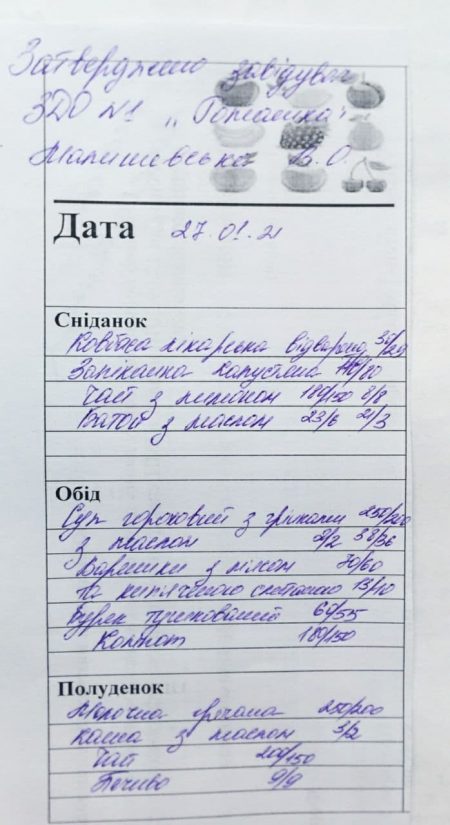 Затверджено завідувач
ЗДО №1 „Ромашка"
Малишевська В.О.
Дата 27.01.21
Сніданок
Ковбаса лікарська відварена
Запіканка капустяна /80
Чай з лимоном 180/150 8/8
Батон з маслом 23/6 21/3
Обід
Суп гороховий з грінками 250/200
з маслом 2/2 38/36
Вареники з 70/60
та кип'яченою сметаною 13/10
Буряк тушкований 67/55
Компот 180/150
Полуденок
Молочна гречана 250/200
каша з маслом 3/2
Чай 200/150
Печиво 9/9